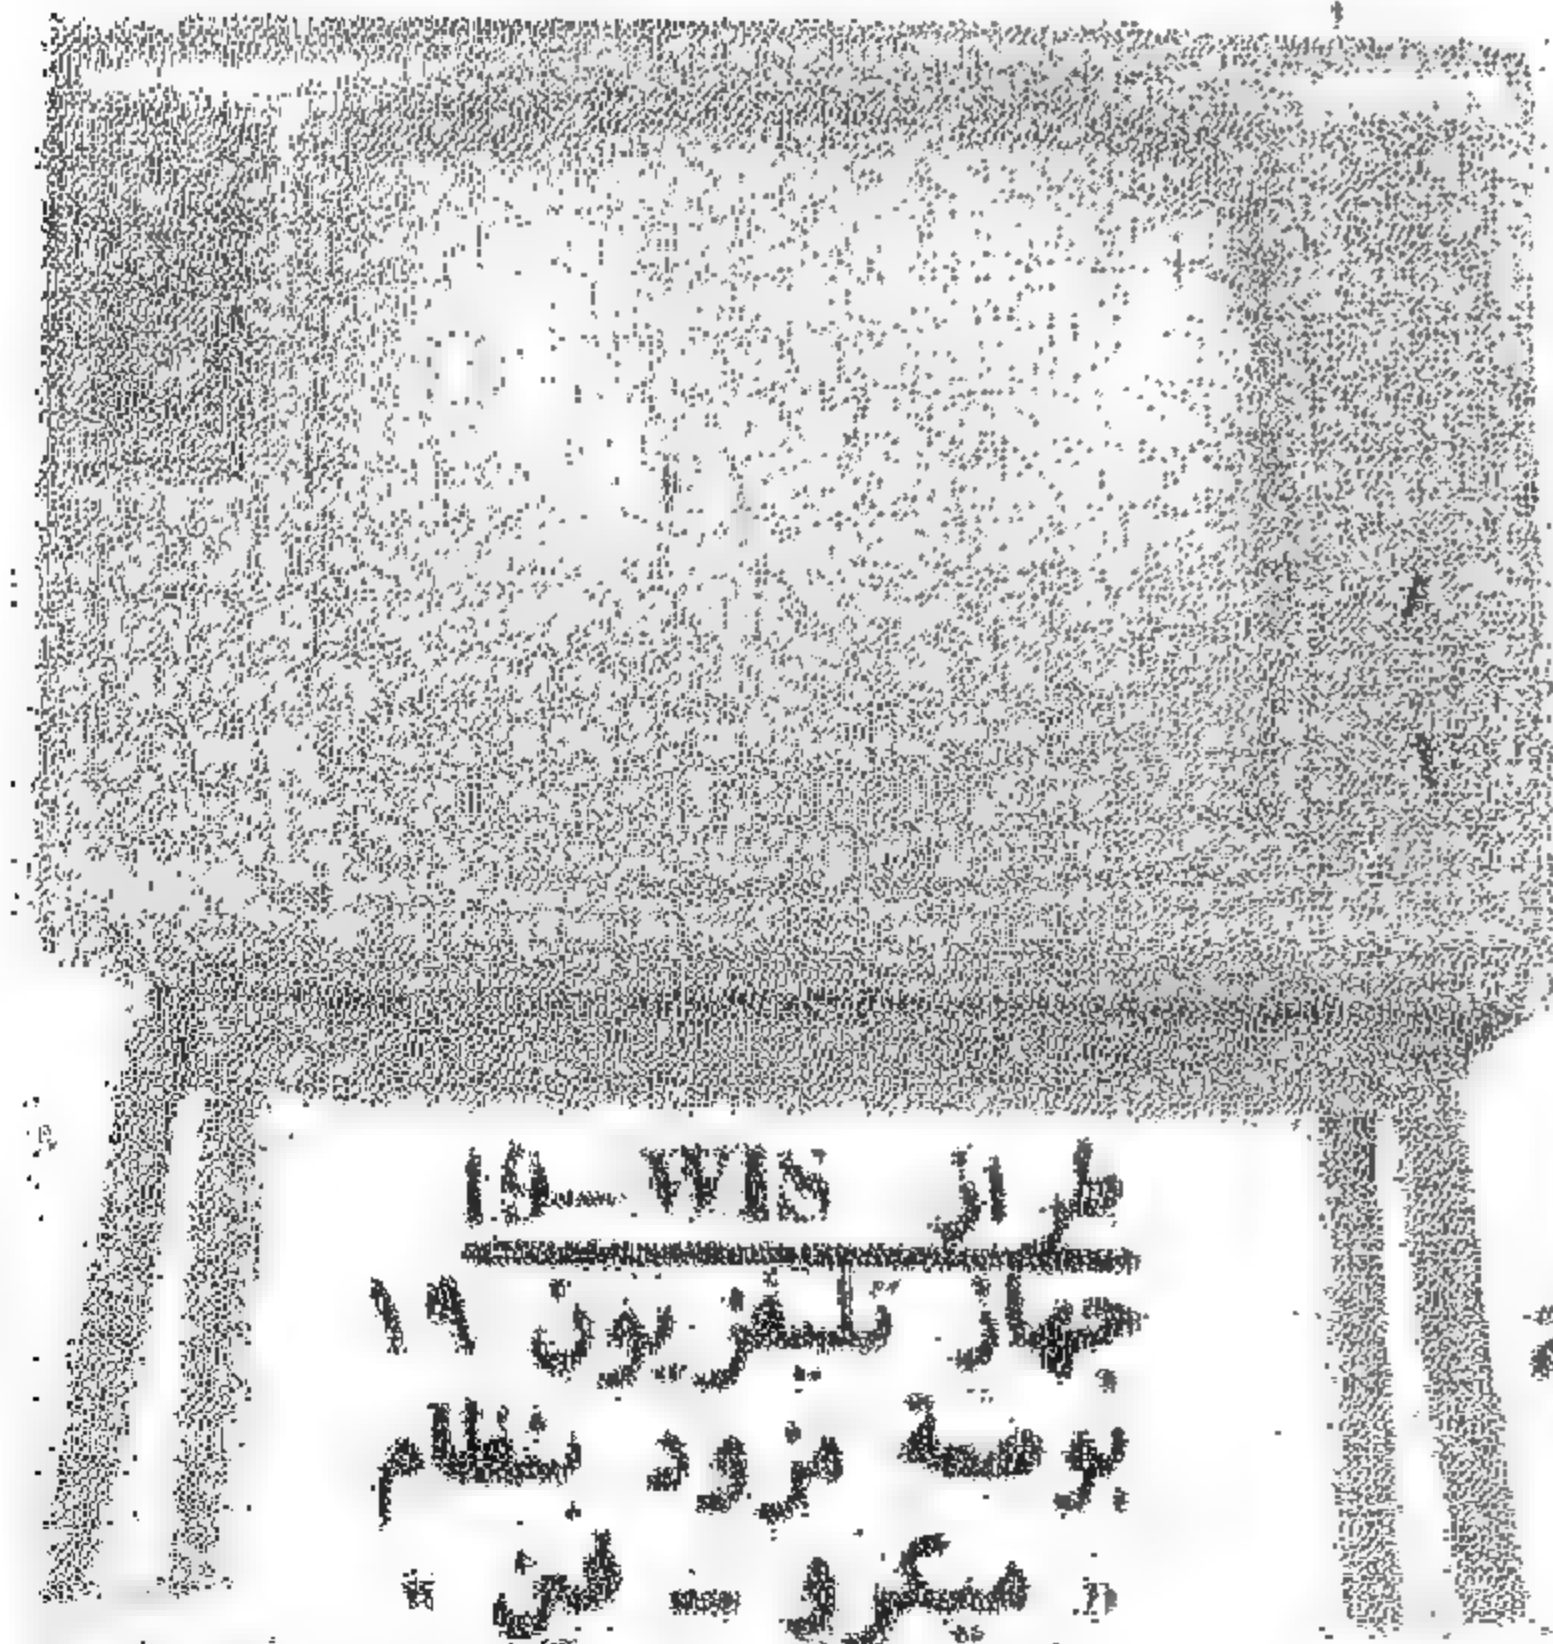 طراز 19_WIS
جهاز تلفزيون ١٩
بوصة مزود بنظام
« ميكرو ـ لين »